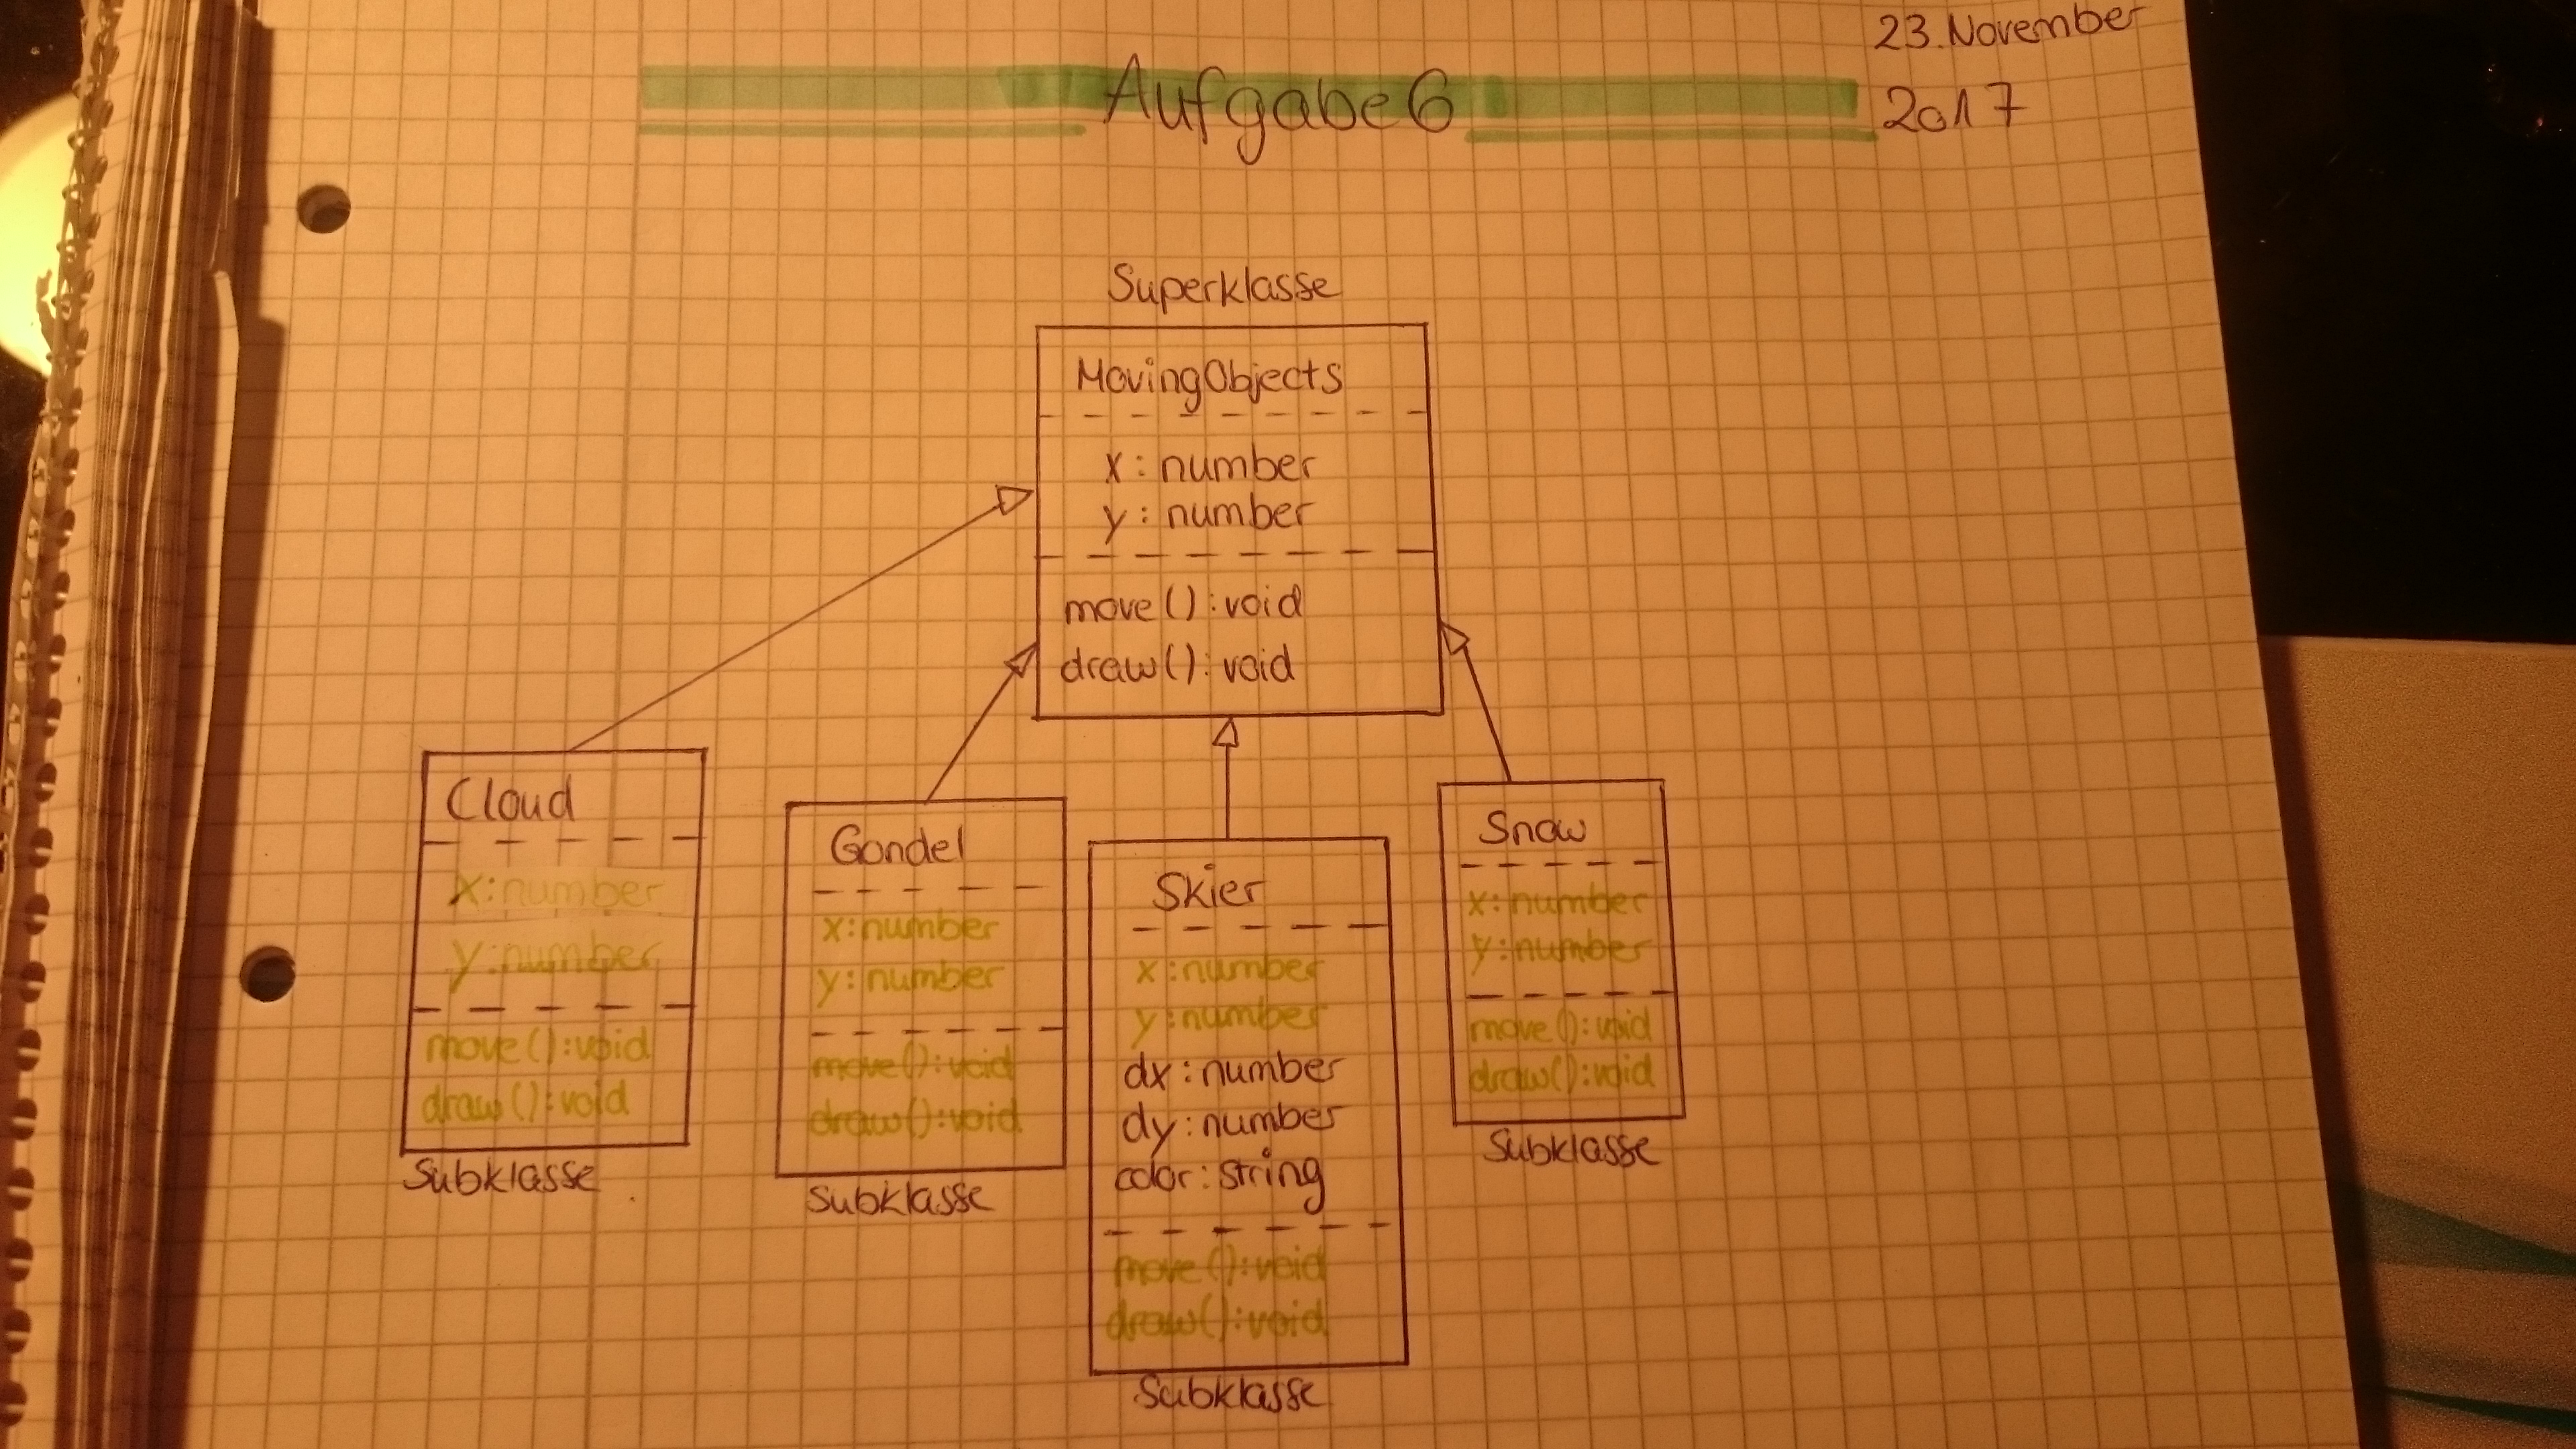 23. November
2017
Aufgabe 6
Superklasse
MovingObjects
x : number
y : number
move () : void
draw () : void
Cloud
x : number
y : number
move () : void
draw () : void
Subklasse
Gondel
x : number
y : number
move () : void
draw () : void
Subklasse
Skier
x : number
y : number
dx : number
dy : number
color : string
move () : void
draw () : void
Subklasse
Snow
x : number
y : number
move () : void
draw () : void
Subklasse